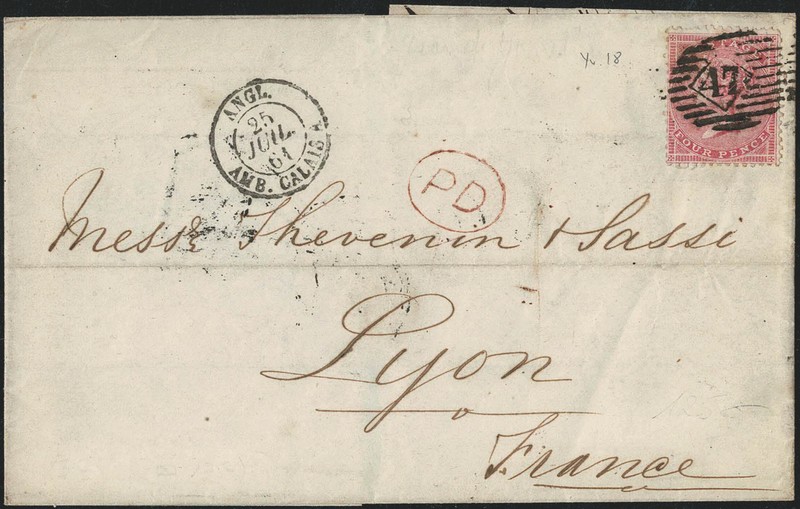 Yv. 18
POSTAGE
47
FOUR PENCE
ANGL.
25
JUIL.
61
AMB. CALAIS A
PD
Messrs Thevenin & Sassi
Lyon
France